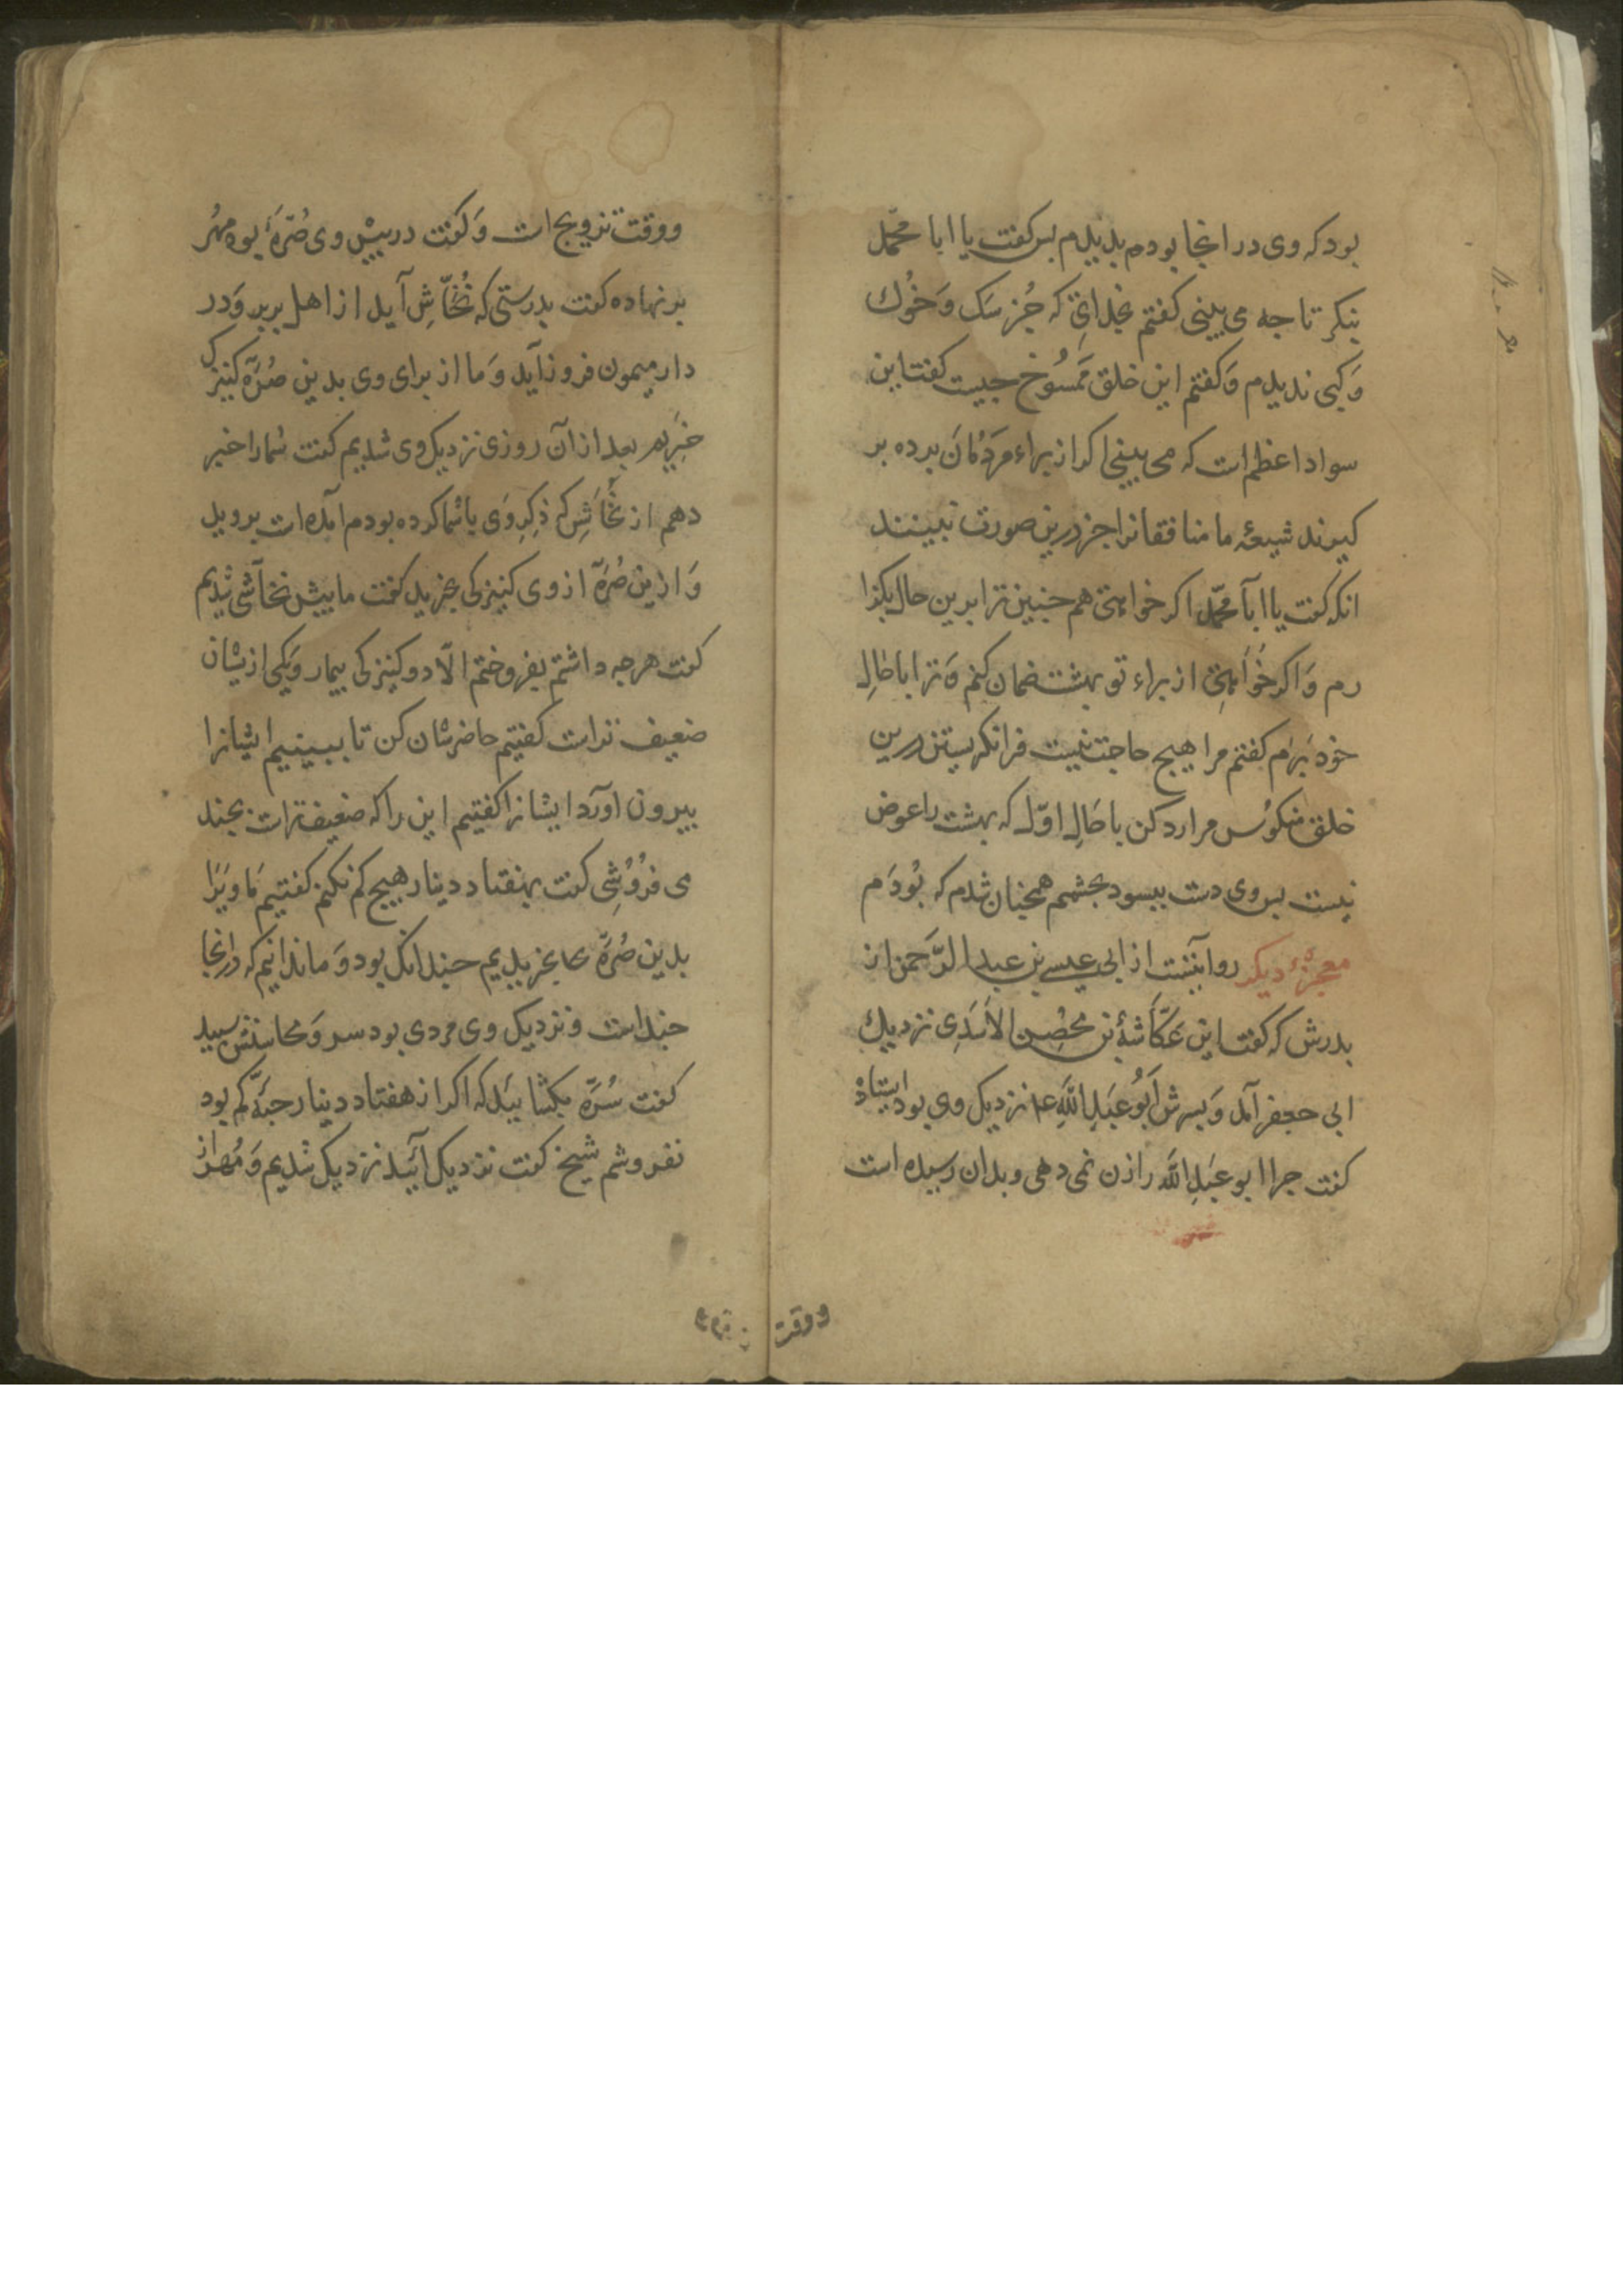 بود که وی در انجا بودم بدیدم بس کفت یا ابا محمّد
بنکر تا جه می بینی کفتم بخدای که جُز سَک وَ خُوک
وَ کبی ندیدم وَ کفتم این خلق مَمسُوخ جیست کفت این
سواد اعظم است که می بینی اکر از براء مَردُمَان برده بر
کیرند شیعهٔ ما منافقانرا جز درین صورت نبینند
انکه کفت یا ابا محمّد اکر خواهی هم جنین ترا برین حال بکذا
رم وَ اکر خُواهی از براء تو بهشت ضمان کنم وَ ترا با حَالِ
خود بَرَم کفتم مرا هیج حاجت نیست فرا نکریستن درین
خلق منکوُس مرا رد کن با حَالِ اوّل که بهشت را عوض
نیست بس وی دست ببسود بجشمم همجنان شدم که بُودَم
معجزهٔ دیکر روایتست از ابی عیسی بن عبد الرَّحمن از
بدرش که کفت ابن عَکّاشهٔ بن مِحصِن الأسَدِی نزدیک
ابی جعفر آمد وَ بسرش اَبُو عَبدِ اللهِ ع نزدیک وی بود ایستاذ
کفت جرا ابو عَبدِ الله را زن نمی دهی و بدان رسیده است
ووقت
ووقت تزویج است وَ کفت در بیش وی صُرَّهٔ بوه مُهُر
بر نهاده کفت بدرستی که نُخّاسِ آید از اهل بربر وَ در
دار میمون فروذ آید وَ ما از برای وی بدین صُرّه کنیزک
خریم بعد از آن روزی نزدیک وی شدیم کفت شما را خبر
دهم از نخّاسِ که ذِکِر وَی با شما کرده بودم آمده است بروید
وَ ازین صُرَّه از وی کنیزکی بخرید کفت ما بیش نخاسی شدیم
کفت هرجه داشتم بفروختم الّا دو کنیزکی بیمار وَ یکی ازیشان
ضعیف تراست کفتیم حاضرشان کن تا ببینیم ایشانرا
بیرون اورد ایشانرا کفتیم این را که ضعیف تراست بجند
می فرُوشِی کفت بهفتاد دینار هیج کم نکنم کفتیم مَا ویرَا
بدین صُرَّه بخریدیم جندانک بود وَ ما ندانیم که درانجا
جنداست و نزدیک وی مردی بود سر وَ محاسنش سبید
کفت سُرَّه بکشائید که اکر از هفتاد دینار حبَّهٔ کم بود
نفروشم شیخ کفت نزدیک آئید نزدیک شدیم وَ مُهر از